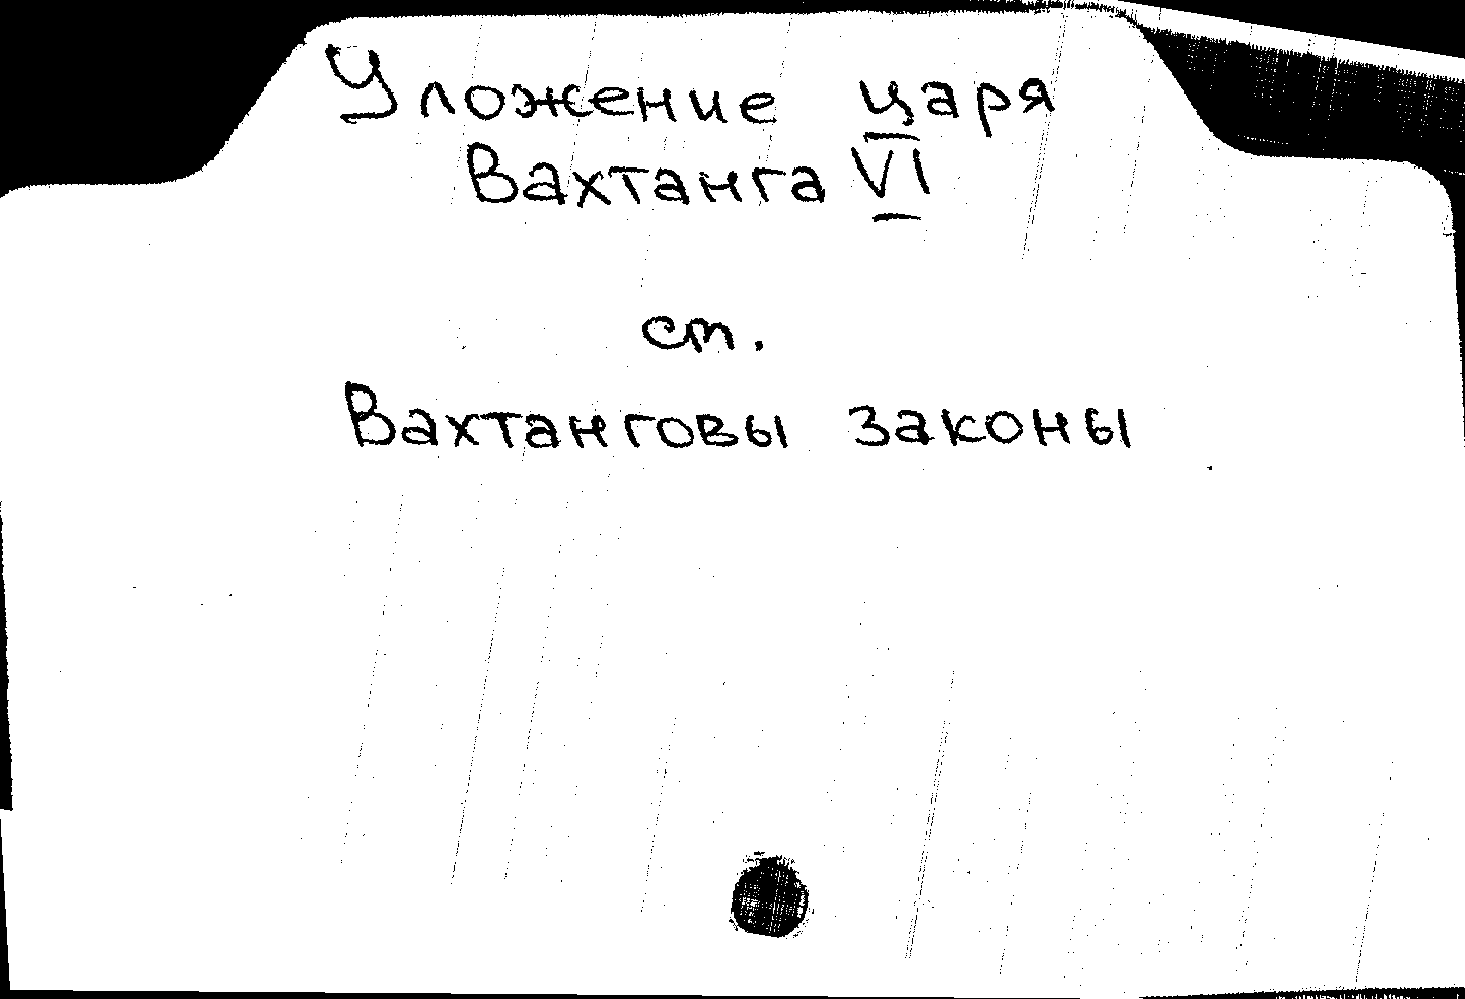 Уложение царя
Вахтанга VI
ст.
Вахтанговы законы